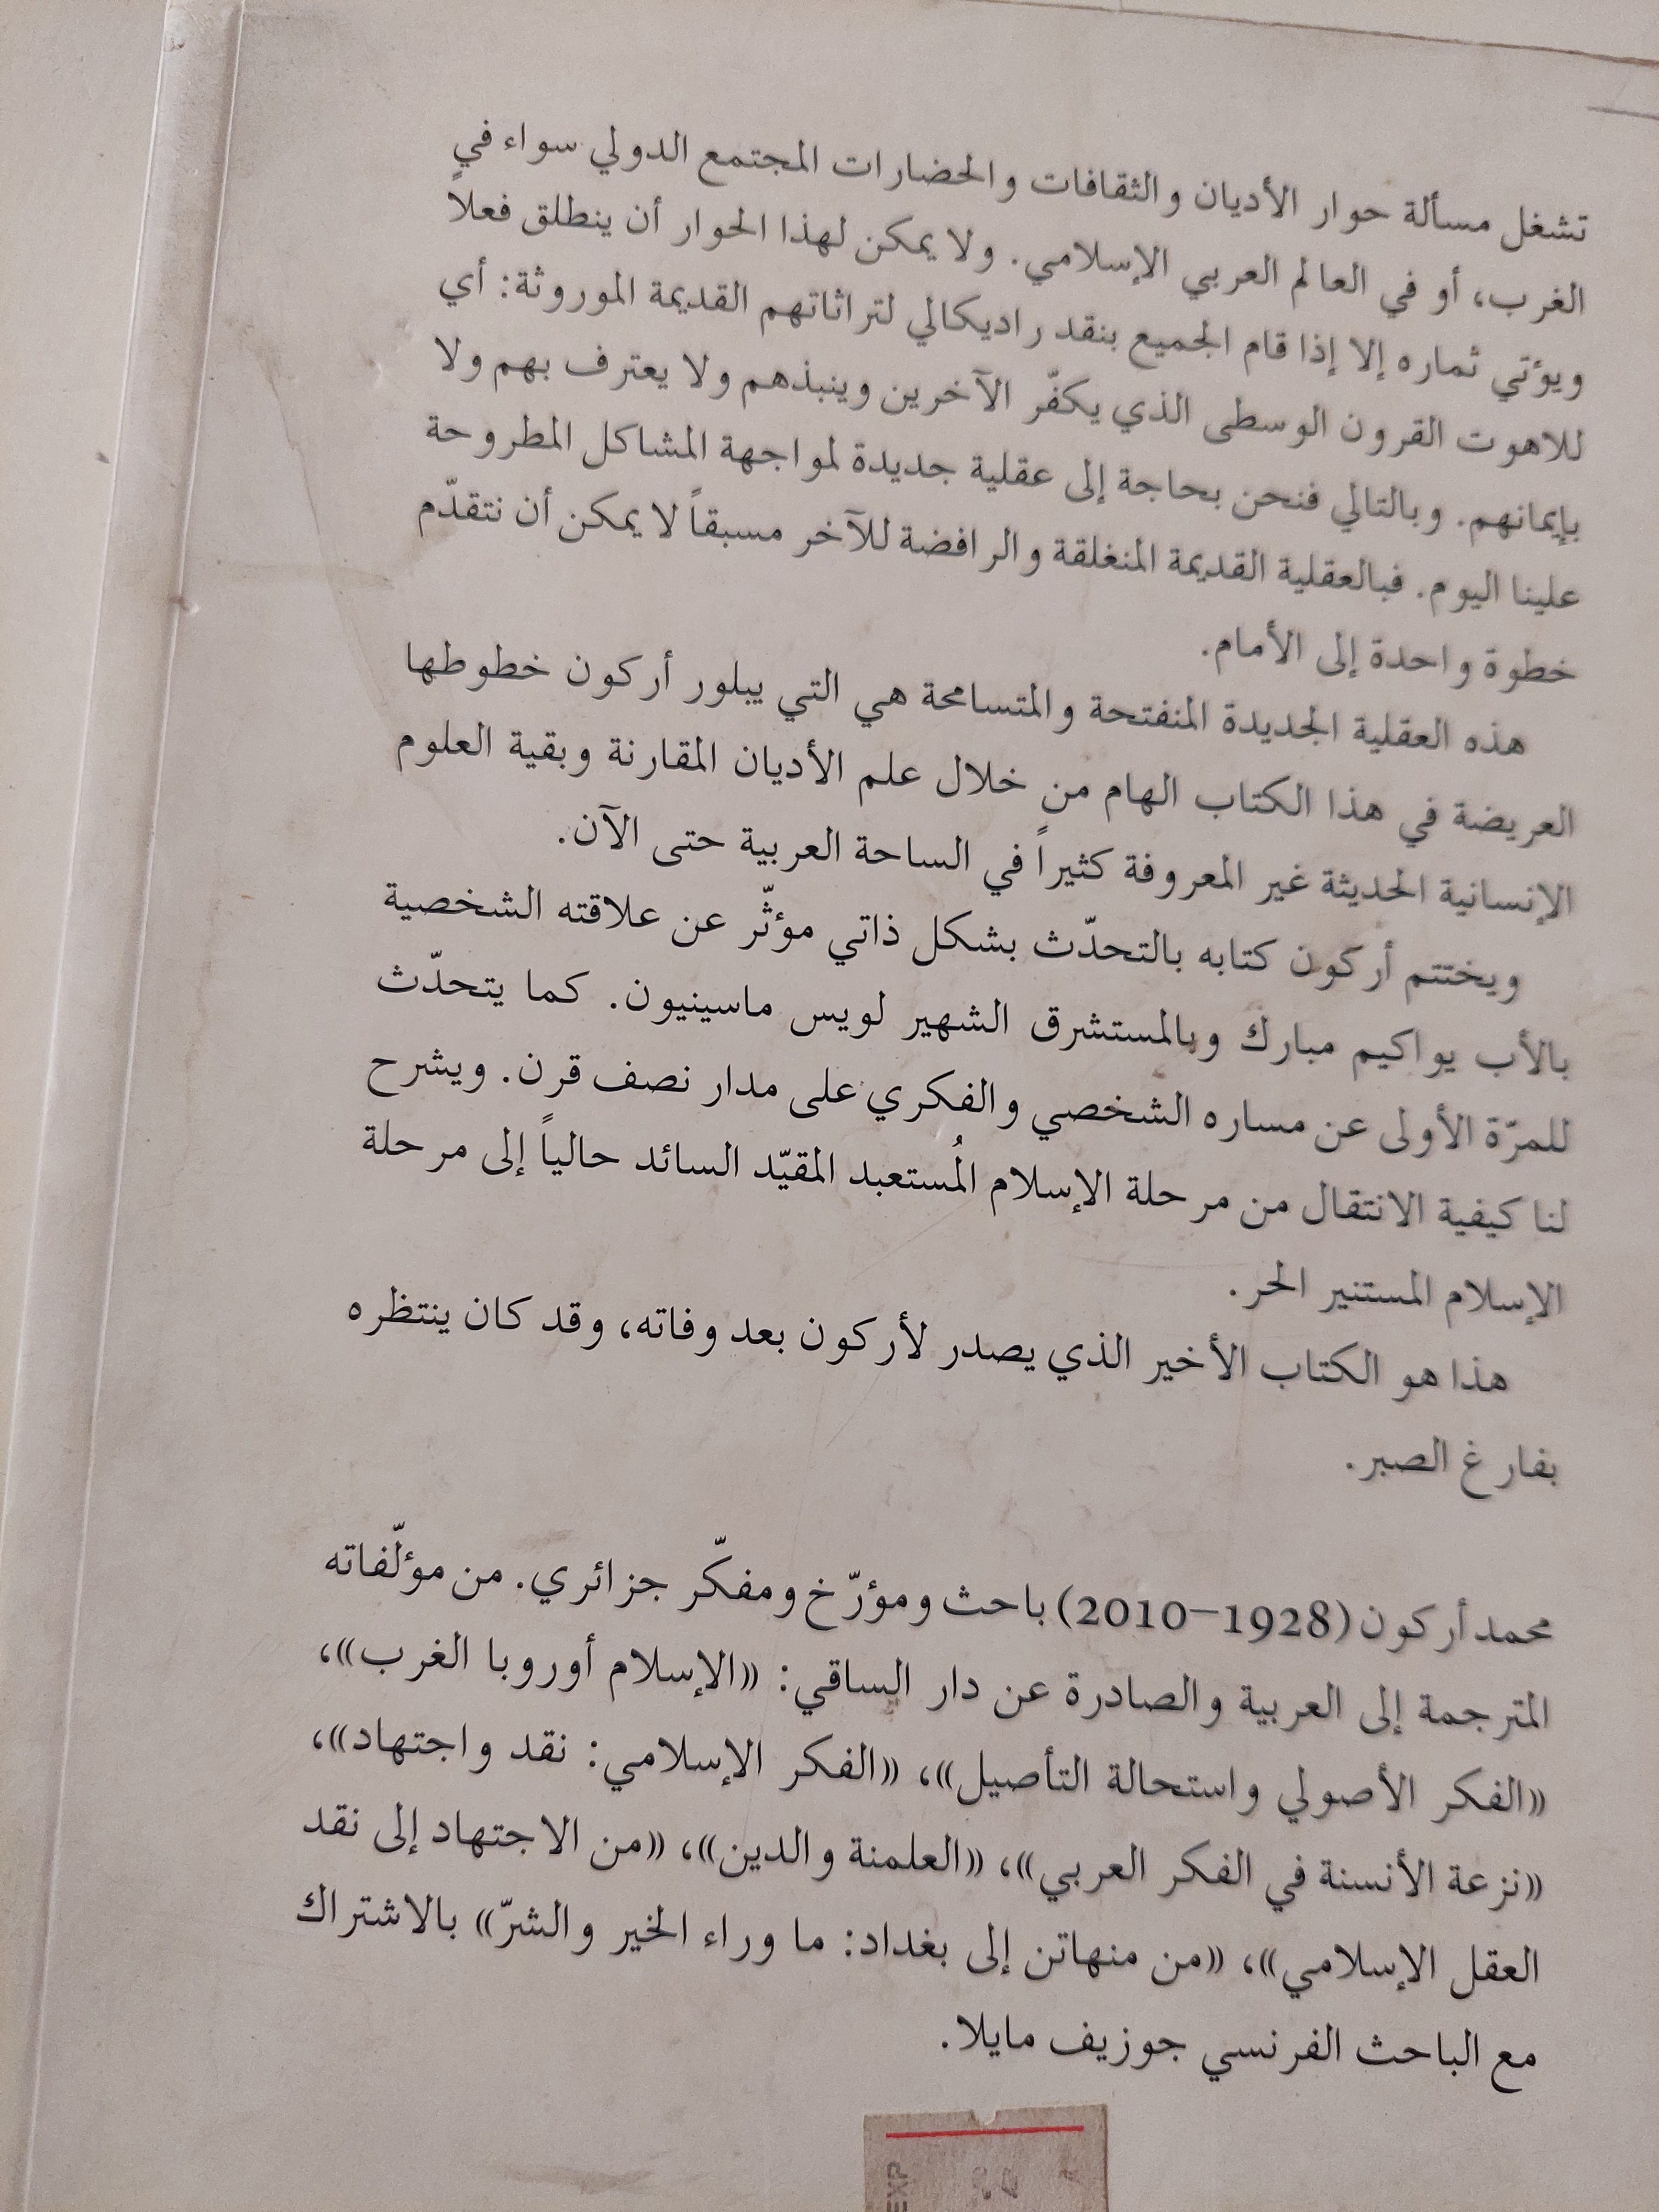 تشغل مسألة حوار الأديان والثقافات والحضارات المجتمع الدولي سواء في
الغرب، أو في العالم العربي الإسلامي. ولا يمكن لهذا الحوار أن ينطلق فعلاً
ويؤتي ثماره إلا إذا قام الجميع بنقد راديكالي لتراثاتهم القديمة الموروثة: أي
للاهوت القرون الوسطى الذي يكفّر الآخرين وينبذهم ولا يعترف بهم ولا
بإيمانهم. وبالتالي فنحن بحاجة إلى عقلية جديدة لمواجهة المشاكل المطروحة
علينا اليوم. فبالعقلية القديمة المنغلقة والرافضة للآخر مسبقاً لا يمكن أن نتقدّم
خطوة واحدة إلى الأمام.
هذه العقلية الجديدة المنفتحة والمتسامحة هي التي يبلور أركون خطوطها
العريضة في هذا الكتاب الهام من خلال علم الأديان المقارنة وبقية العلوم
الإنسانية الحديثة غير المعروفة كثيراً في الساحة العربية حتى الآن.
ويختتم أركون كتابه بالتحدّث بشكل ذاتي مؤثّر عن علاقته الشخصية
بالأب يواكيم مبارك وبالمستشرق الشهير لويس ماسينيون. كما يتحدّث
للمرّة الأولى عن مساره الشخصي والفكري على مدار نصف قرن. ويشرح
لنا كيفية الانتقال من مرحلة الإسلام المُستعبد المقيّد السائد حالياً إلى مرحلة
الإسلام المستنير الحر.
هذا هو الكتاب الأخير الذي يصدر لأركون بعد وفاته، وقد كان ينتظره
بفارغ الصبر.
محمد أركون (1928–2010) باحث ومؤرّخ ومفكّر جزائري. من مؤلّفاته
المترجمة إلى العربية والصادرة عن دار الساقي: «الإسلام أوروبا الغرب»،
«الفكر الأصولي واستحالة التأصيل»، «الفكر الإسلامي: نقد واجتهاد»،
«نزعة الأنسنة في الفكر العربي»، «العلمنة والدين»، «من الاجتهاد إلى نقد
العقل الإسلامي»، «من منهاتن إلى بغداد: ما وراء الخير والشرّ» بالاشتراك
مع الباحث الفرنسي جوزيف مايلا.
EXP